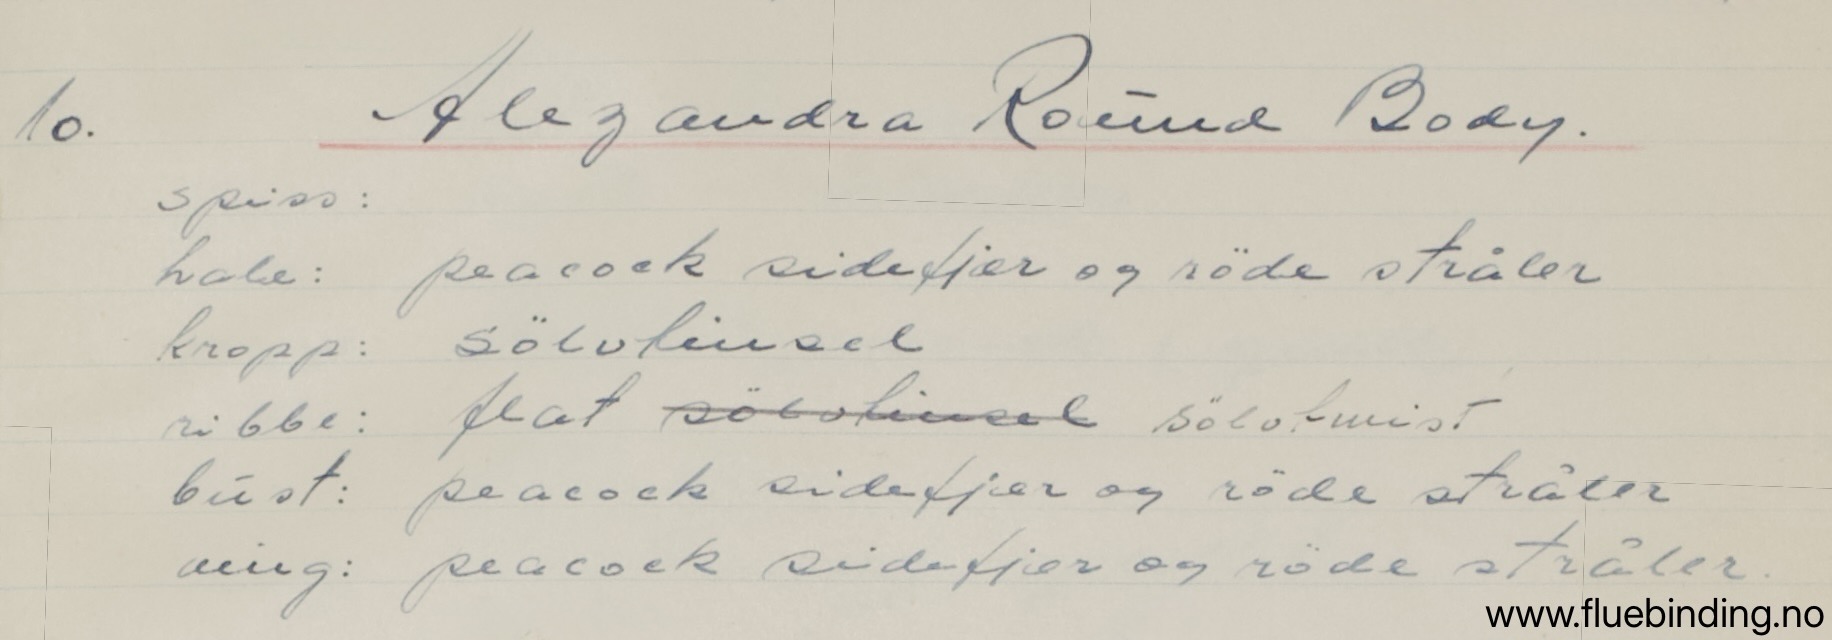 10. Alexandra Round Body.
spiss:
hale: peacock sidefjær og röde stråler
kropp: sölvtinsel
ribbe: flat sölvtinsel sölvtwist
büst: peacock sidefjær og röde stråler
ving: peacock sidefjær og röde stråler.
www.fluebinding.no